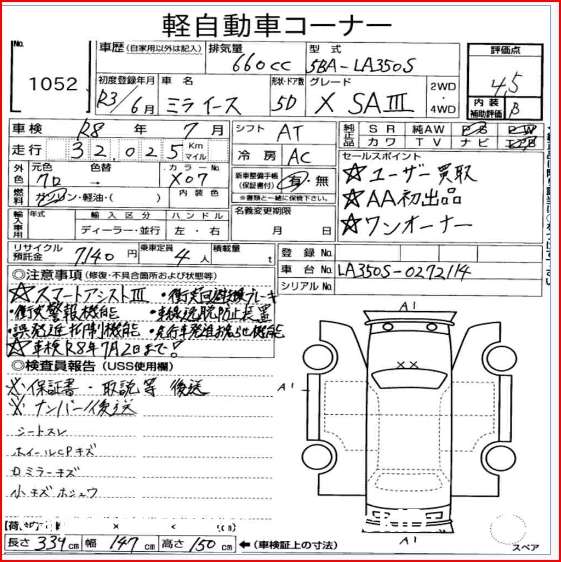 軽自動車コーナー
No. 1052
車歴 (自家用以外は記入)
排気量 660cc
型式 5BA-LA350S
初度登録年月 R3/6月
車名 ミライース
形状・ドア数 5D
グレード X SAⅢ
2WD・4WD
評価点 4.5
内装補助評価 B
車検 R8年7月
走行 32,025 Km マイル
シフト AT
冷房 AC
純正品 SR 純AW PS PW
カワ TV ナビ エアB
外色 元色 クロ 色替→
カラーNo. X07
燃料 ガソリン・軽油・( )
内装色
新車整備手帳(保証書付) 有・無
※書類と一緒に保管下さい。
セールスポイント
☆ユーザー買取
☆AA初出品
☆ワンオーナー
輸入車用 年式 輸入区分 ハンドル
ディーラー・並行 左・右
名義変更期限
月 日
リサイクル預託金 7140円
乗車定員 4人
積載量 t
登録No.
車台No. LA350S-0272114
シリアルNo.
◎注意事項 (修復・不具合箇所および状態等)
☆スマートアシストⅢ ・衝突回避支援ブレーキ
・衝突警報機能 ・車線逸脱防止装置
・誤発進抑制機能 ・先行車発進お知らせ機能
☆車検R8年7月2日まで!
◎検査員報告 (USS使用欄)
※保証書・取説等 後送
※ナンバー後送
シートスレ
ホイールCPキズ
Dミラーキズ
小キズホシュウ
A1
A1
A1
A1
××
長さ 339cm 幅 147cm 高さ 150cm ←(車検証上の寸法)
スペア